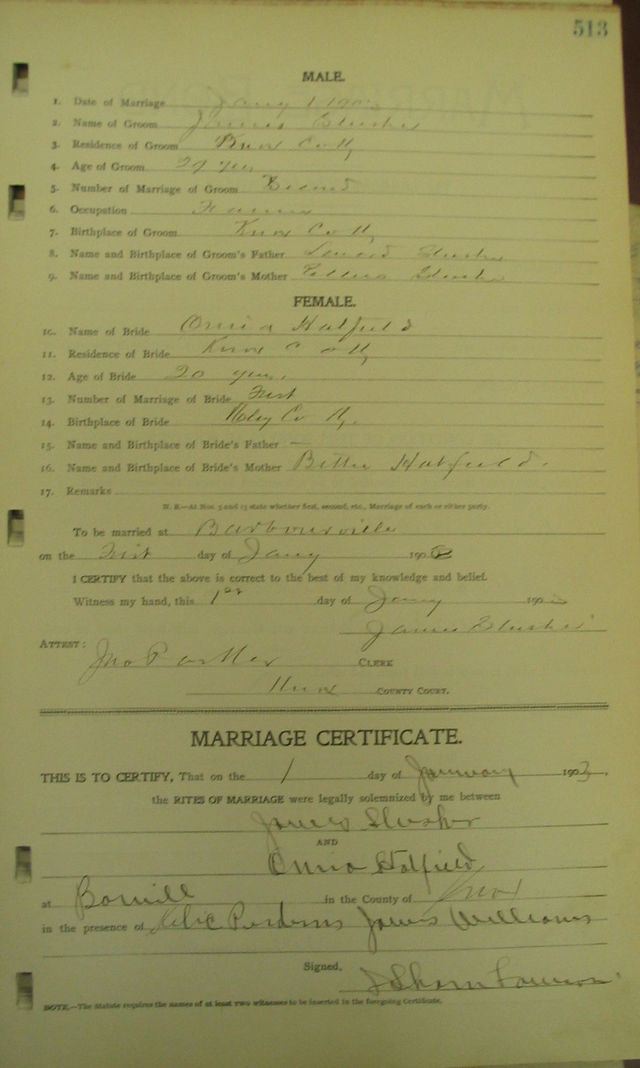 513
MALE.
1. Date of Marriage Jany 1 1903
2. Name of Groom James Slusher
3. Residence of Groom Knox Co Ky
4. Age of Groom 29 yrs
5. Number of Marriage of Groom Second
6. Occupation Farmer
7. Birthplace of Groom Knox Co Ky
8. Name and Birthplace of Groom's Father Slusher
9. Name and Birthplace of Groom's Mother Slusher
FEMALE.
10. Name of Bride Hatfield
11. Residence of Bride Knox Co Ky
12. Age of Bride 20 years
13. Number of Marriage of Bride First
14. Birthplace of Bride Co Ky.
15. Name and Birthplace of Bride's Father —
16. Name and Birthplace of Bride's Mother Hatfield.
17. Remarks
N. B.—At Nos. 5 and 13 state whether first, second, etc., Marriage of each or either party.
To be married at Barbourville
on the First day of Jany 190
I CERTIFY that the above is correct to the best of my knowledge and belief.
Witness my hand, this 1st day of Jany 190
James Slusher
ATTEST: Jno CLERK
Knox COUNTY COURT.
MARRIAGE CERTIFICATE.
THIS IS TO CERTIFY, That on the 1 day of January 1903.
the RITES OF MARRIAGE were legally solemnized by me between
James Slusher
AND
Hatfield
at in the County of Knox
in the presence of James Williams
Signed,
NOTE.—The Statute requires the names of at least two witnesses to be inserted in the foregoing Certificate.